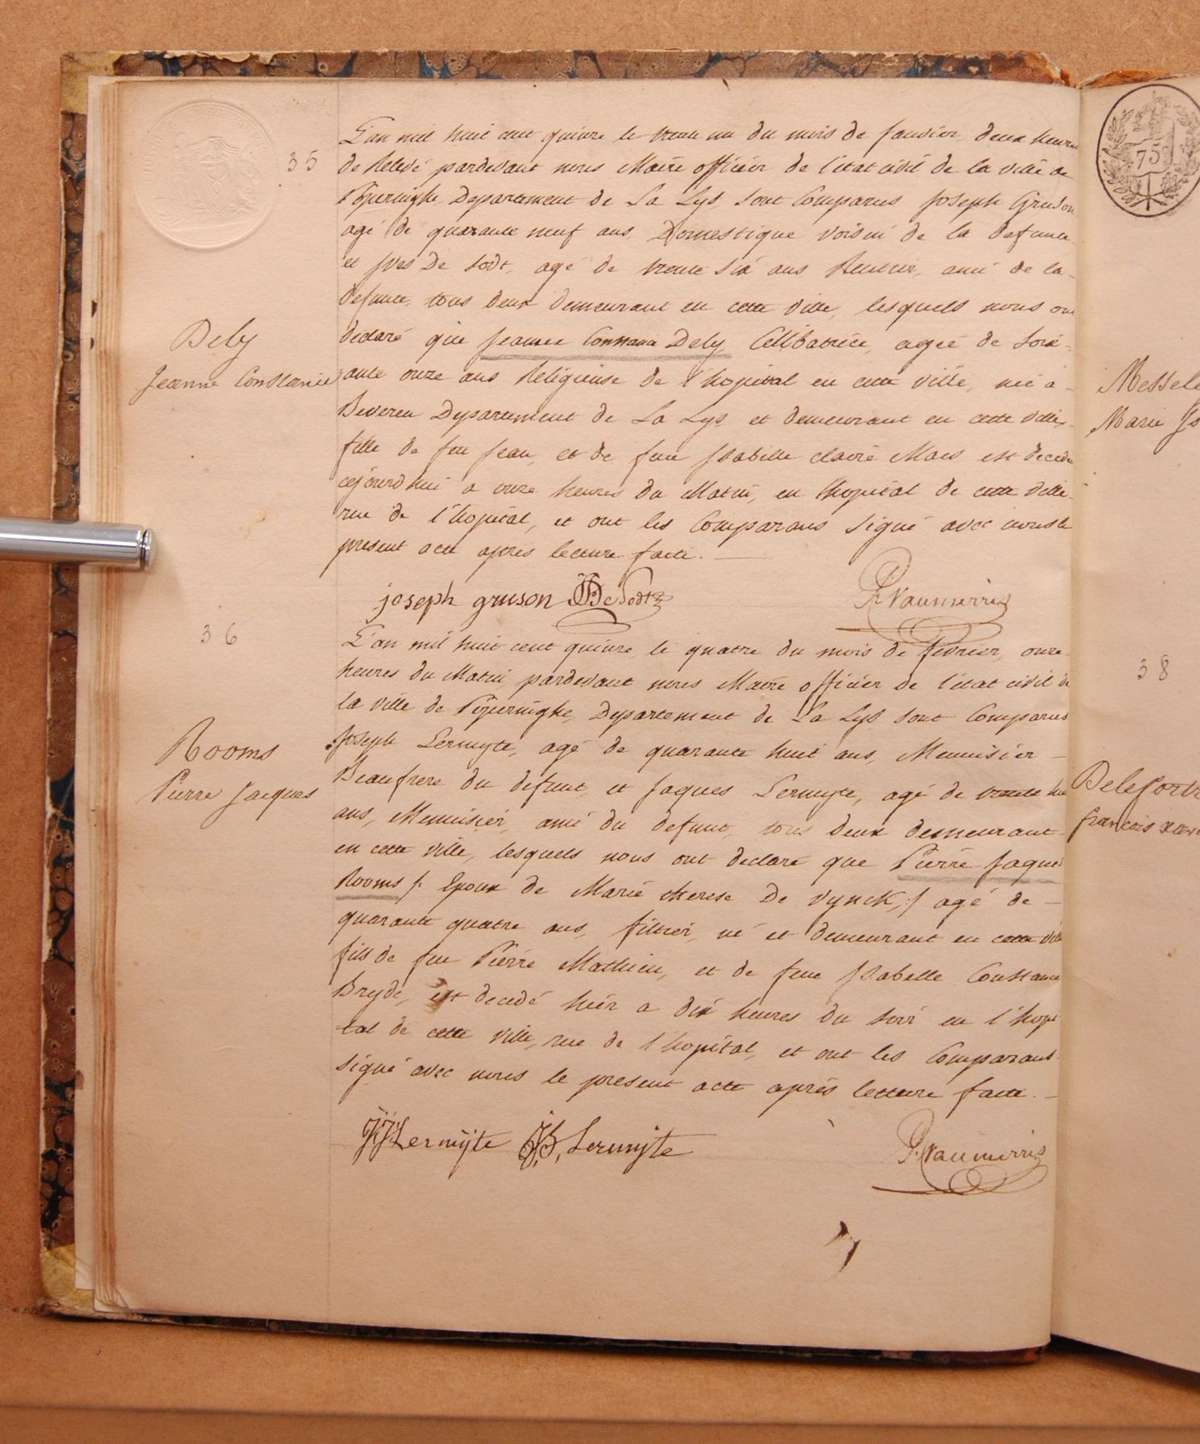 35
L'an mil huit cent quinze le trente un du mois de Janvier, deux heures
de Relevé pardevant nous Maire officier de l'etat civil de la ville de
Poperinghe Departement de La Lys sont Comparus Joseph Gruson
agé de quarante neuf ans Domestique voisin de la defunte
et Ives De Sodt, agé de trente six ans Rentier, ami de la
defunte, tous deux demeurant en cette ville, lesquels nous ont
declaré que Jeanne Constance Dely Célibatrice, agée de soix-
ante onze ans Religieuse de l'hopital en cette ville, née à
Beveren Departement de La Lys et demeurant en cette ville,
fille de feu Jean, et de feue Isabelle claire Maes est decedée
cejourd'hui a onze heures du Matin, en l'hopital de cette ville
rue de l'hopital, et ont les Comparans signé avec nous le
present acte après lecture faite.
Dely
Jeanne Constance
joseph gruson De Sodt
P. Vanmerris
36
L'an mil huit cent quinze le quatre du mois de fevrier, onze
heures du Matin pardevant nous Maire officier de l'etat civil de
la ville de Poperinghe, Departement de La Lys sont Comparus
Joseph Lermyte, agé de quarante huit ans, Menuisier
Beaufrere du defunt, et Jaques Lermyte, agé de trente huit
ans, Menuisier, ami du defunt, tous deux demeurant
en cette ville, lesquels nous ont declaré que Pierre Jaques
Rooms /: Epoux de Marie therese De Vynck,/ agé de
quarante quatre ans, filtier, né et demeurant en cette ville
fils de feu Pierre Mathieu, et de feue Isabelle Constance
Bryde, est decedé hier a dix heures du soir en l'hopi
tal de cette ville, rue de l'hopital, et ont les Comparans
signé avec nous le present acte après lecture faite.
Rooms
Pierre Jacques
JJ Lermÿte J,B, Lermijte
P. Vanmerris
75
Messel
Marie Is
38
Delefort
francois xav